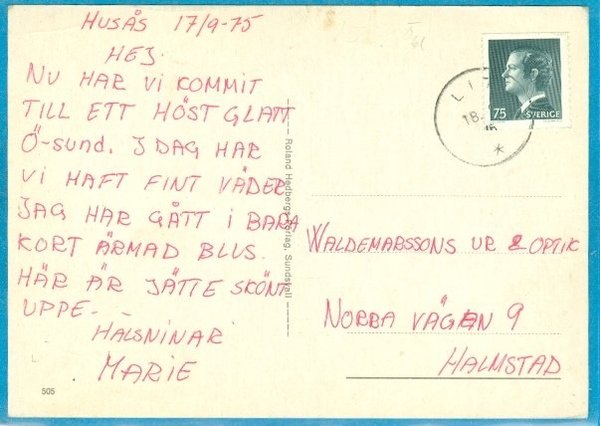 HUSÅS 17/9-75
HEJ.
NU HAR VI KOMMIT
TILL ETT HÖST GLATT
Ö-SUND. I DAG HAR
VI HAFT FINT VÄDER
JAG HAR GÅTT I BARA
KORT ÄRMAD BLUS.
HÄR ÄR JÄTTE SKÖNT
UPPE.
HALSNINAR
MARIE
505
Roland Hedbergs Förlag, Sundsvall
75 SVERIGE
18.
WALDEMARSSONS UR & OPTIK
NORRA VÄGEN 9
HALMSTAD